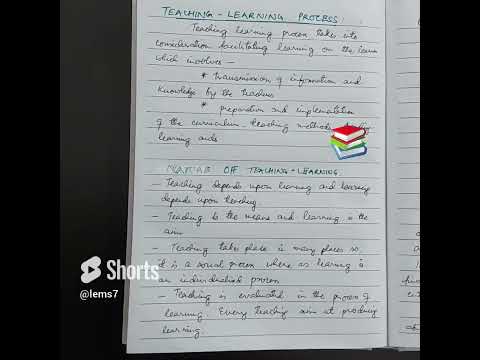 TEACHING - LEARNING PROCESS
Teaching learning process takes into
consideration facilitating learning on the learner
which involves -
* transmission of information and
knowledge by the teachers
* preparation and implementation
of the curriculum - teaching methods
learning aids
OF TEACHING - LEARNING
- Teaching depends upon learning and learning
depends upon teaching
- Teaching is the means and learning is the
aim
- Teaching take place in many places so
it is a social process where as learning is
an individualised process
- Teaching is evaluated in the process of
learning. Every teaching aim at producing
learning.
Shorts
@lems7